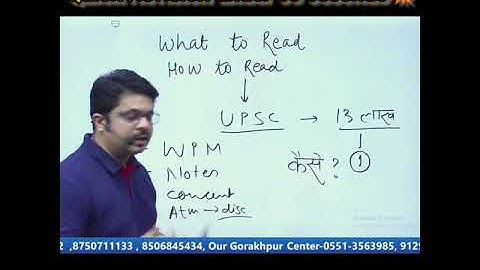 What to Read
How to Read
UPSC → 13 लाख
WPM
कैसे ? 1
Notes
concent
Atm → disc
2 ,8750711133 , 8506845434, Our Gorakhpur Center-0551-3563985, 9129